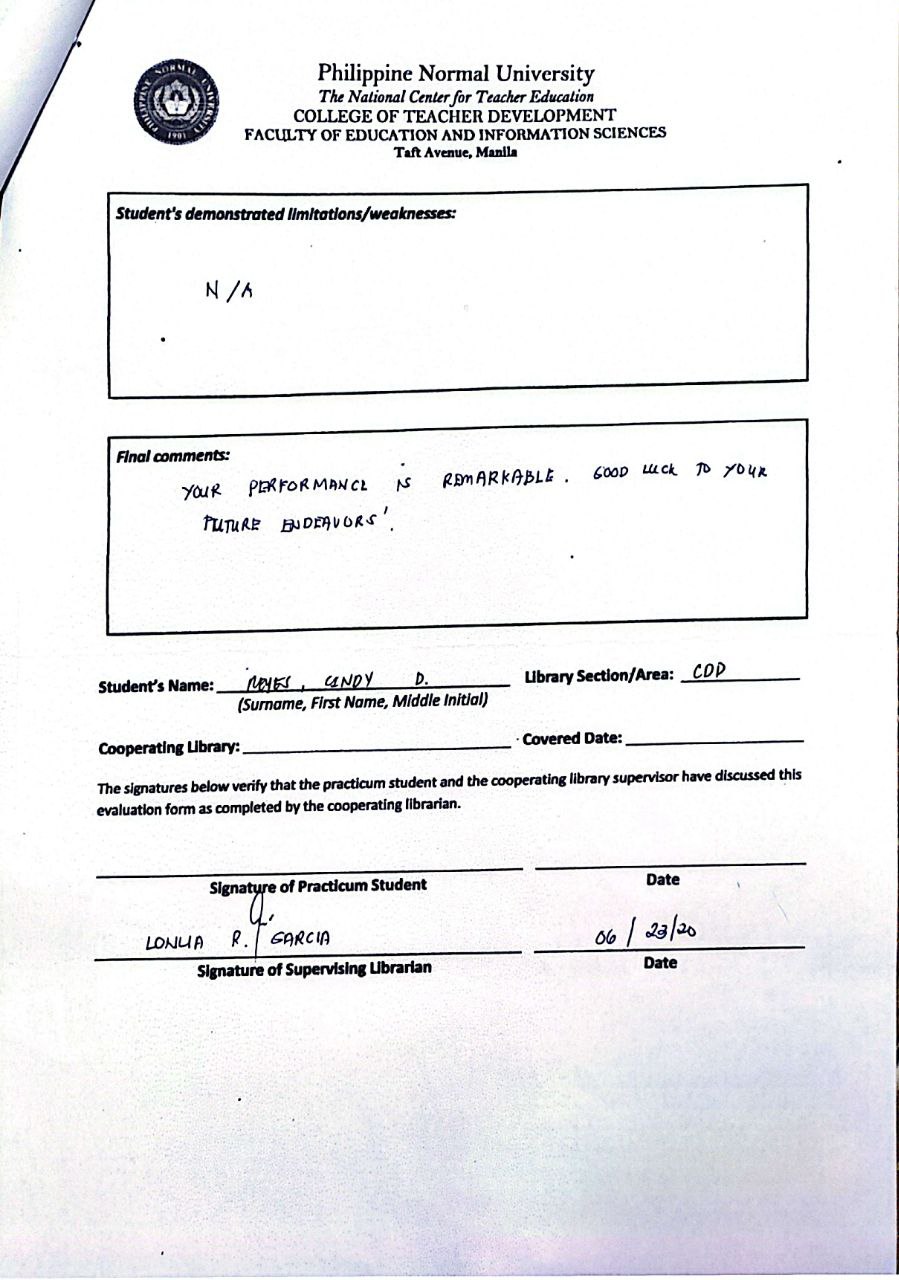 Philippine Normal University
The National Center for Teacher Education
COLLEGE OF TEACHER DEVELOPMENT
FACULTY OF EDUCATION AND INFORMATION SCIENCES
Taft Avenue, Manila
PHILIPPINE NORMAL UNIVERSITY
1901
Student's demonstrated limitations/weaknesses:
N/A
Final comments:
YOUR PERFORMANCE IS REMARKABLE. GOOD LUCK TO YOUR
FUTURE ENDEAVORS'.
Student's Name: REYES, CANDY D. Library Section/Area: CDD
(Surname, First Name, Middle Initial)
Cooperating Library: Covered Date:
The signatures below verify that the practicum student and the cooperating library supervisor have discussed this
evaluation form as completed by the cooperating librarian.
Signature of Practicum Student Date
R. GARCIA 06/23/20
Signature of Supervising Librarian Date